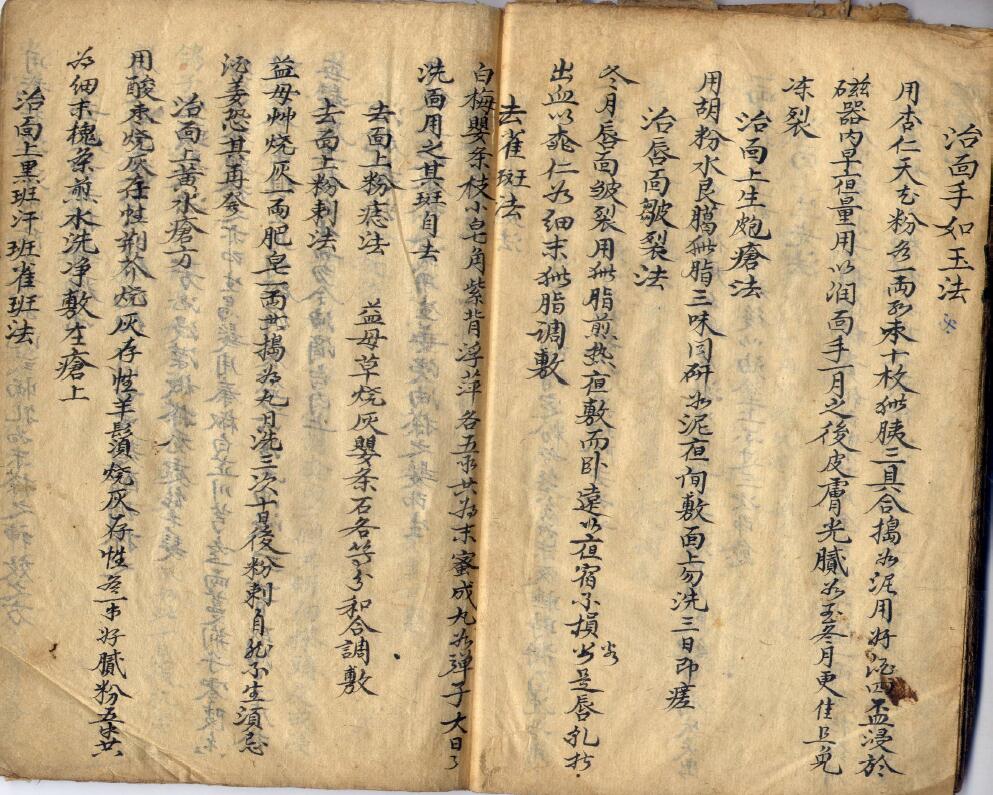 治面手如玉法
用杏仁天花粉各一両紅枣十枚猪胰三具合搗如泥用好酒四盃浸於
磁器内早但量用以润面手一月之後皮膚光膩如玉冬月更佳且免
冻裂
治面上生皰瘡法
用胡粉水艮臈猪脂三味同研如泥夜间敷面上勿洗三日即瘥
治唇面皺裂法
冬月唇面皴裂用猪脂煎热夜敷而卧遠以夜宿不損若是唇孔拆
出血以桃仁为细末猪脂調敷
去雀斑法
白梅嬰条枝小皂角紫背浮萍各五分共为末蜜成丸如弹子大日日
洗面用之其斑自去
去面上粉痣法
益母草烧灰嬰条石各等分和合調敷
去面上粉刺法
益母艸烧灰一両肥皂一両共搗为丸日洗三次十日後粉刺自然不生須忌
酒姜恐其再發
治面上黄水瘡方
用酸枣烧灰存性荆芥烧灰存性羊鬚烧灰存性各一戋好膩粉五分共
为细末槐条煎水洗净敷在瘡上
治面上黑斑汗斑雀斑法